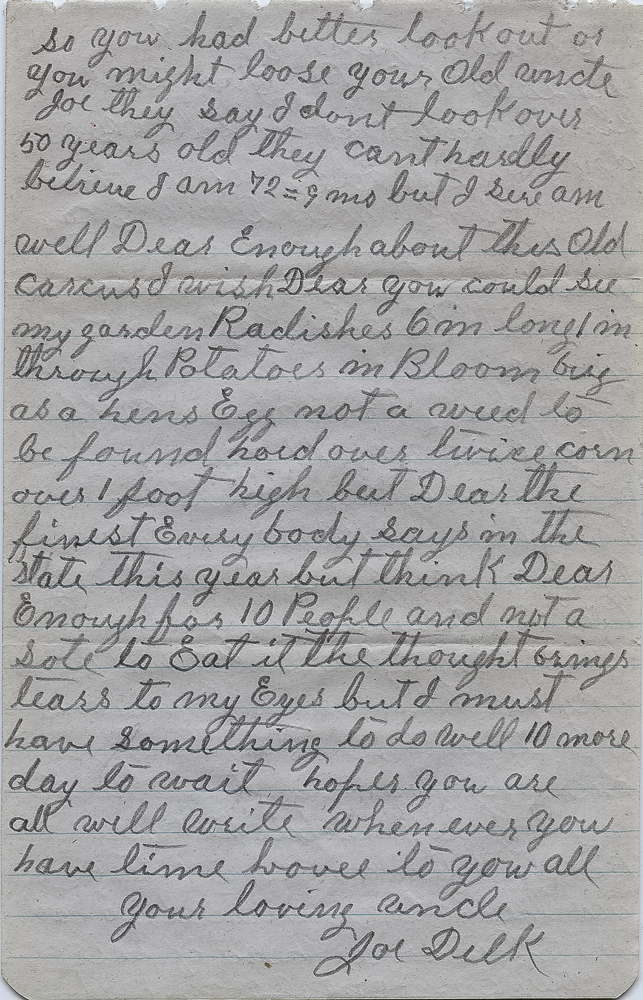 so you had better look out or
you might loose your Old uncle
Joe they say I dont look over
50 years old they cant hardly
believe I am 72=9 mo but I sure am
well Dear Enough about this Old
carcus I wish Dear you could see
my garden Radishes 6 in long 1 in
through Potatoes in Bloom big
as a hens Egg not a weed to
be found hoed over twice corn
over 1 foot high but Dear the
finest Every body says in the
state this year but think Dear
Enough for 10 People and not a
sole to Eat it the thought brings
tears to my Eyes but I must
have something to do well 10 more
day to wait hopes you are
all well write when ever you
have time to you all
your loving uncle
Joe Delk